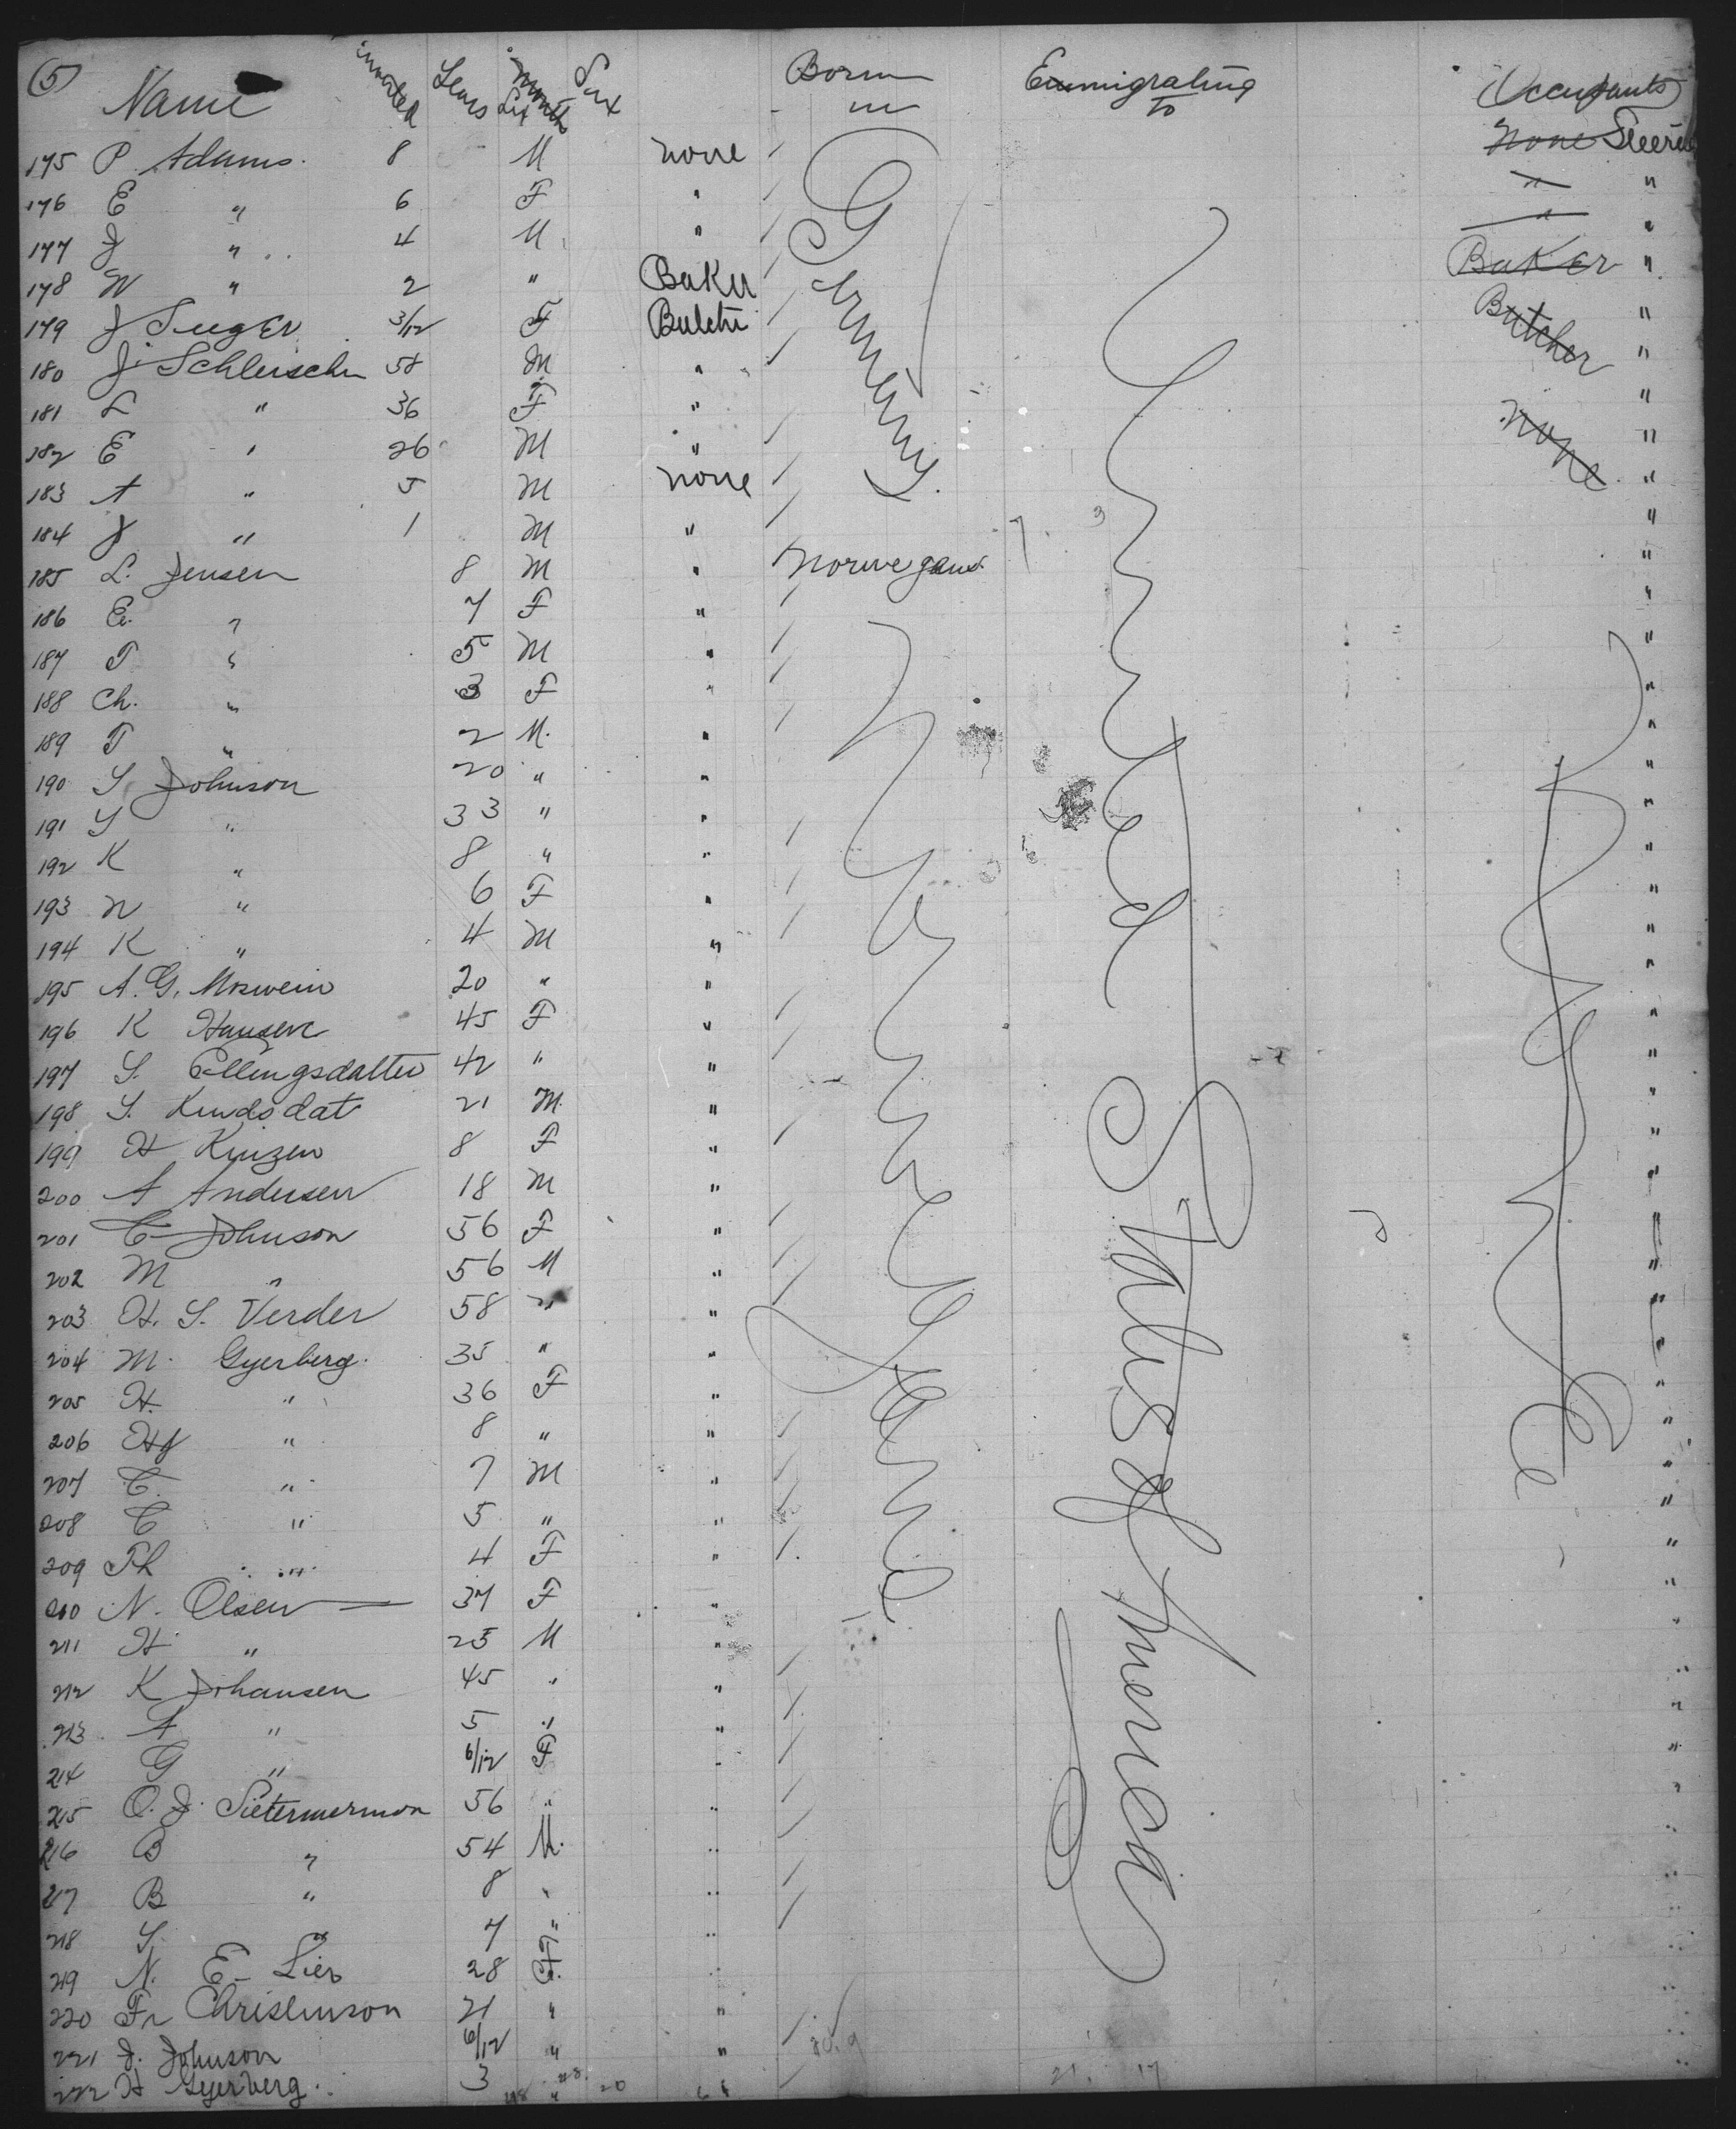 (5) Name inverted Years Months Sex Born in Emmigrating to Occupants
175 P Adams. 8 M none None Steerage
176 E " 6 F " " "
177 J " 4 M " " "
178 W " 2 " Baker Baker "
179 J 3/12 F Butcher "
180 J Schleischer 58 M " "
181 L " 36 F " "
182 E " 26 M " none "
183 A " 5 M none "
184 J " 1 M " "
185 L. Jensen 8 M " Norwegans "
186 E. " 7 F " "
187 T " 5 M " "
188 Ch. " 3 F " "
189 T " 2 M. " "
190 S Johnson 20 " " "
191 S " 33 " " "
192 K " 8 " " "
193 N " 6 F " "
194 K " 4 M " "
195 A. G. 20 " " "
196 K Hansen 45 F " "
197 S. Ellingsdatter 42 " " "
198 S. Knudsdat 21 M. " "
199 H Kinzen 8 F " "
200 A Andersen 18 M " "
201 C Johnson 56 F " "
202 M " 56 M " "
203 H. S. Verder 58 " " "
204 M. Gyerberg. 35 " " "
205 H. " 36 F " "
206 HJ " 8 " " "
207 C. " 7 M " "
208 C " 5 " " "
209 Th " 4 F " "
210 N. Olsen 37 F " "
211 H " 25 M " "
212 K Johansen 45 " " "
213 A " 5 " " "
214 G " 6/12 F " "
215 O. J. Sietermermon 56 " " "
216 B " 54 M. " "
217 B " 8 " " "
218 S. " 7 " " "
219 N. E. Lier 28 F. " "
220 Fr Christenson 21 " " "
221 J. Johnson 6/12 " "
222 H Gyerberg. 3 "
Germany
United States of America
None